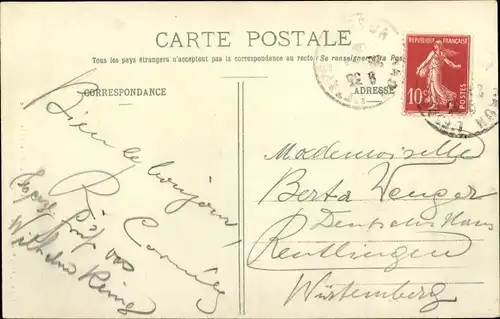 CARTE POSTALE
Tous les pays étrangers n'acceptent pas la correspondance au recto (Se renseigner à la Poste)
CORRESPONDANCE
ADRESSE
REPUBLIQUE FRANÇAISE
10c POSTES
Bien le bonjour,
Mademoiselle
Berta Wenger
Reutlingen
Würtemberg
Gruß von
Wilhelm